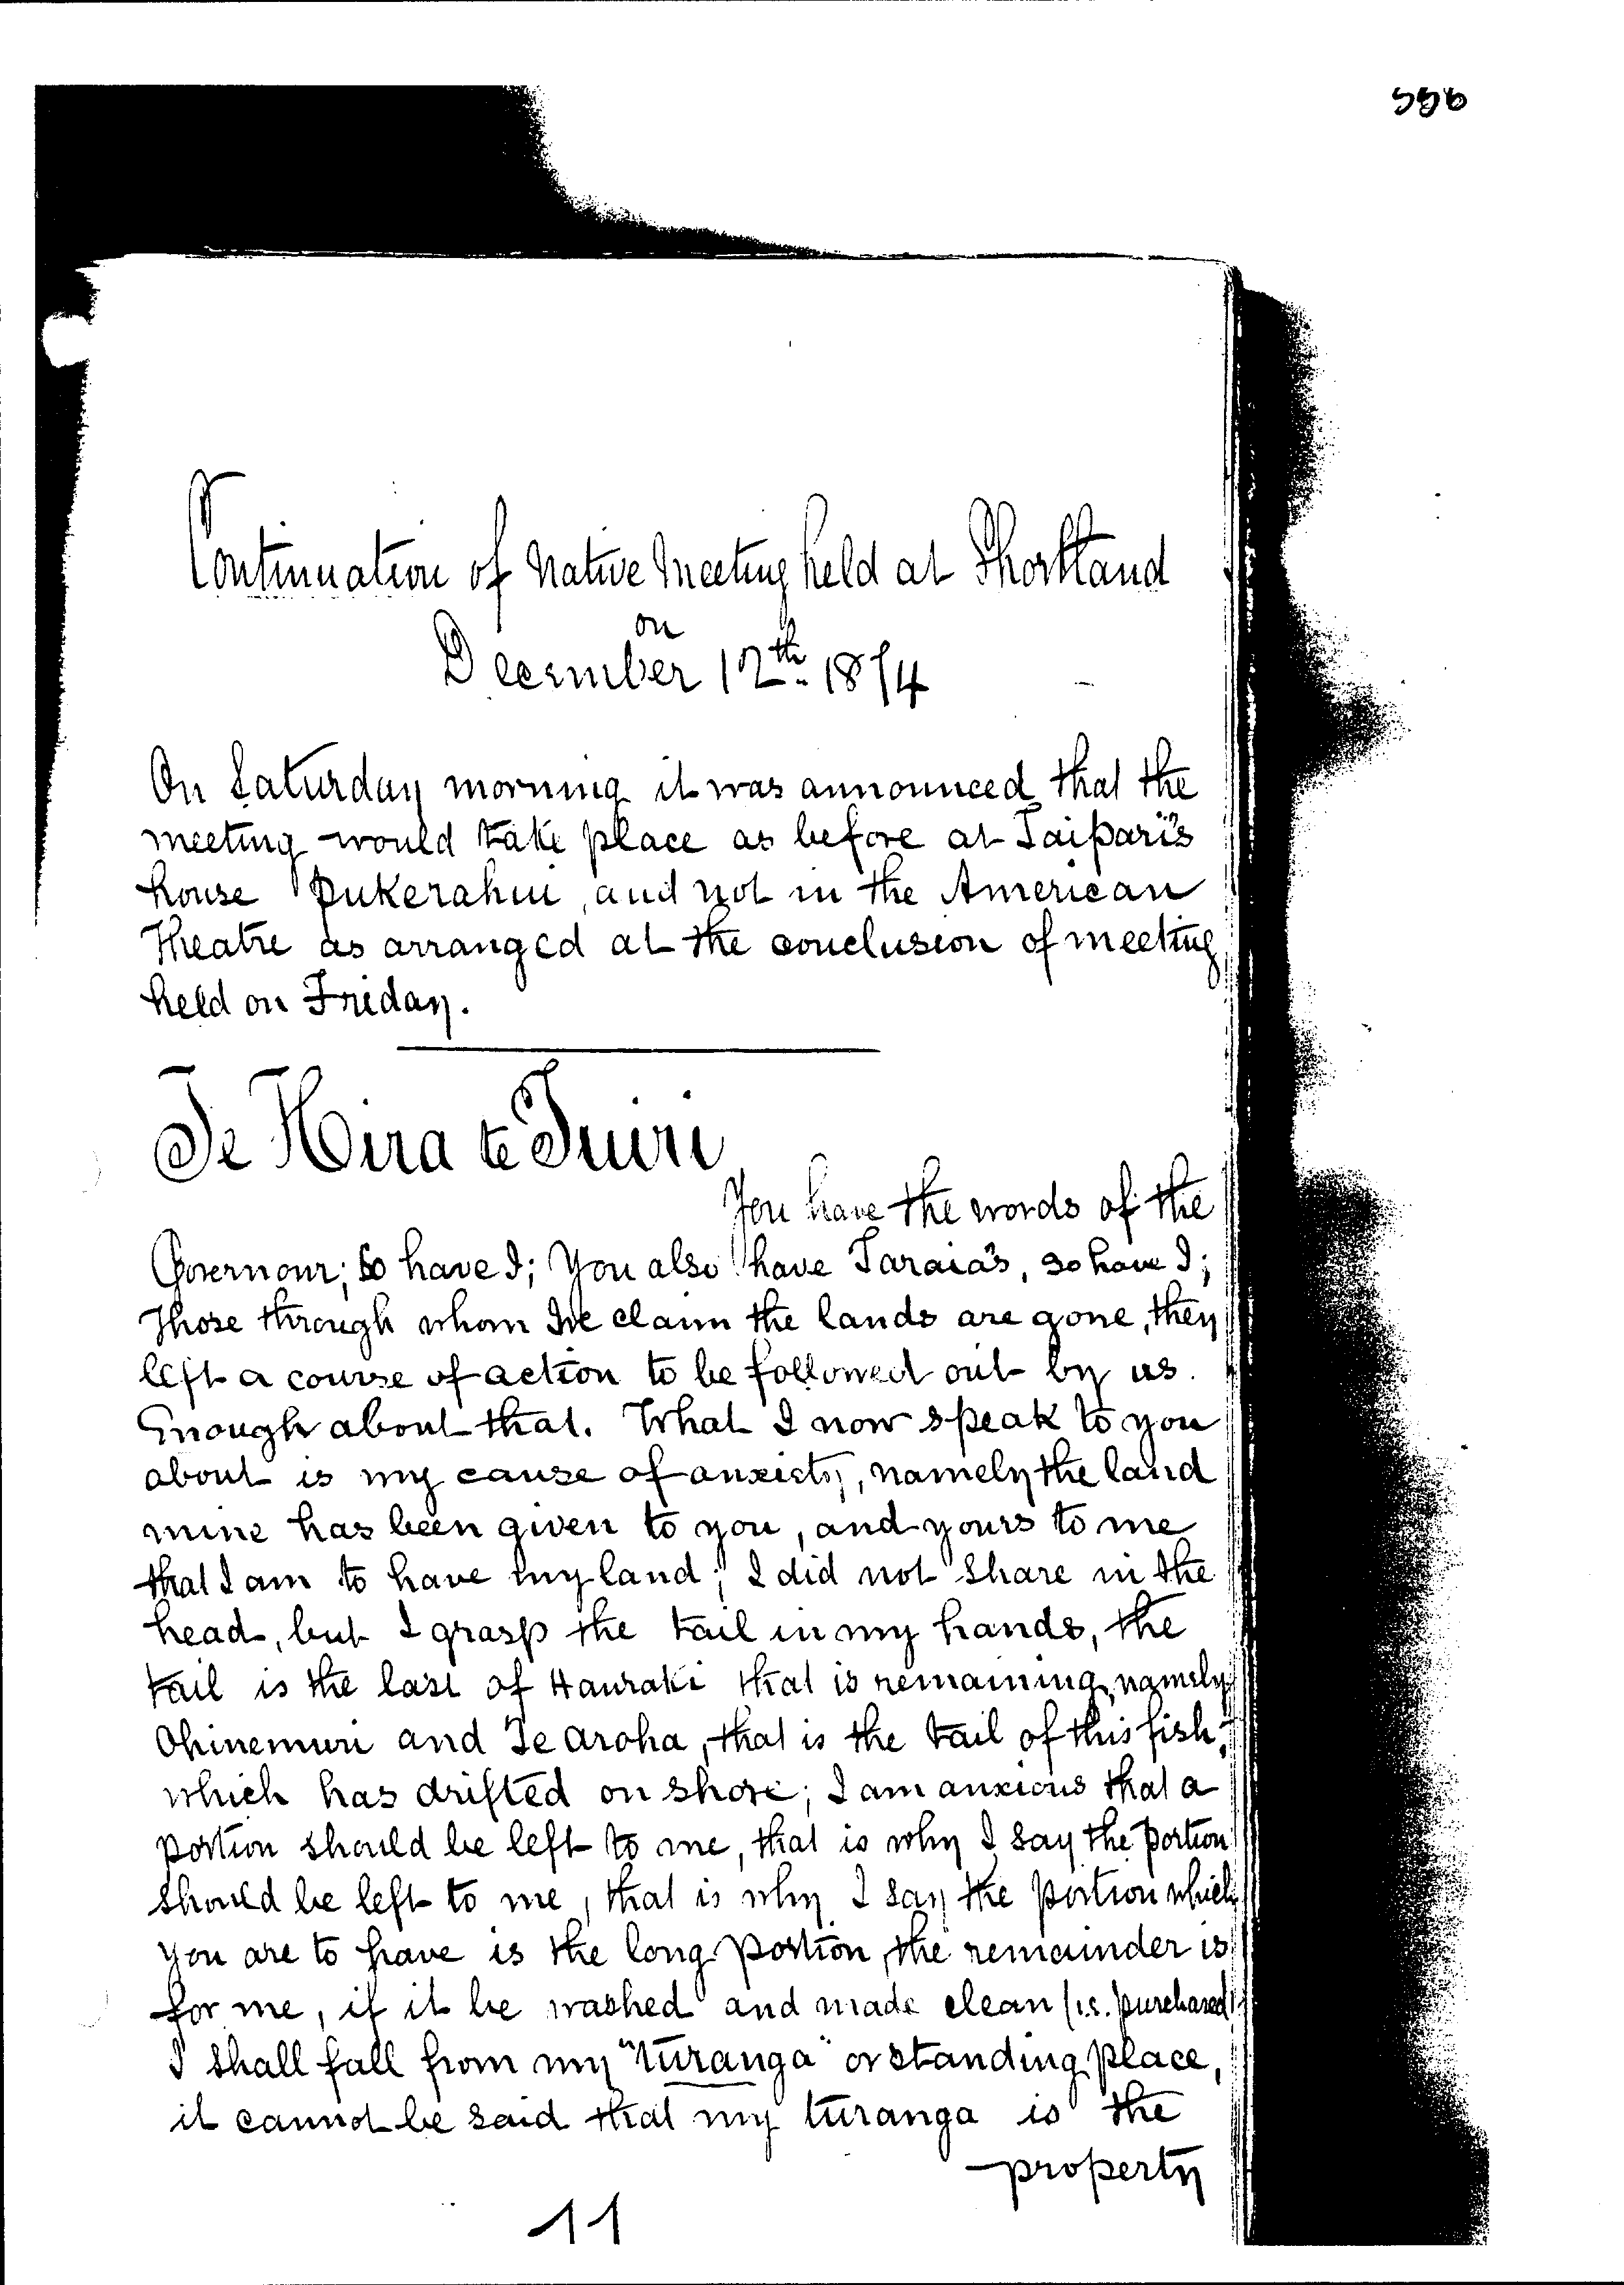 556
Continuation of Native Meeting held at Shortland
on
December 12th 1874
On Saturday morning it was announced that the
meeting would take place as before at Taipari's
house Pukerahui, and not in the American
Theatre as arranged at the conclusion of meeting
held on Friday.
Te Hira te Tuiri
You have the words of the
Governour; so have I; You also have Taraia's, so have I;
Those through whom we claim the lands are gone, they
left a course of action to be followed out by us.
Enough about that. What I now speak to you
about is my cause of anxiety, namely the land
mine has been given to you, and yours to me
that I am to have my land; I did not share in the
head, but I grasp the tail in my hands, the
tail is the last of Hauraki that is remaining, namely
Ohinemuri and Te Aroha, that is the tail of this fish,
which has drifted on shore; I am anxious that a
portion should be left to me, that is why I say the portion
should be left to me, that is why I say the portion which
you are to have is the long portion, the remainder is
for me, if it be washed and made clean (i.e. purchased)
I shall fall from my "turanga" or standing place,
it cannot be said that my turanga is the
property
11